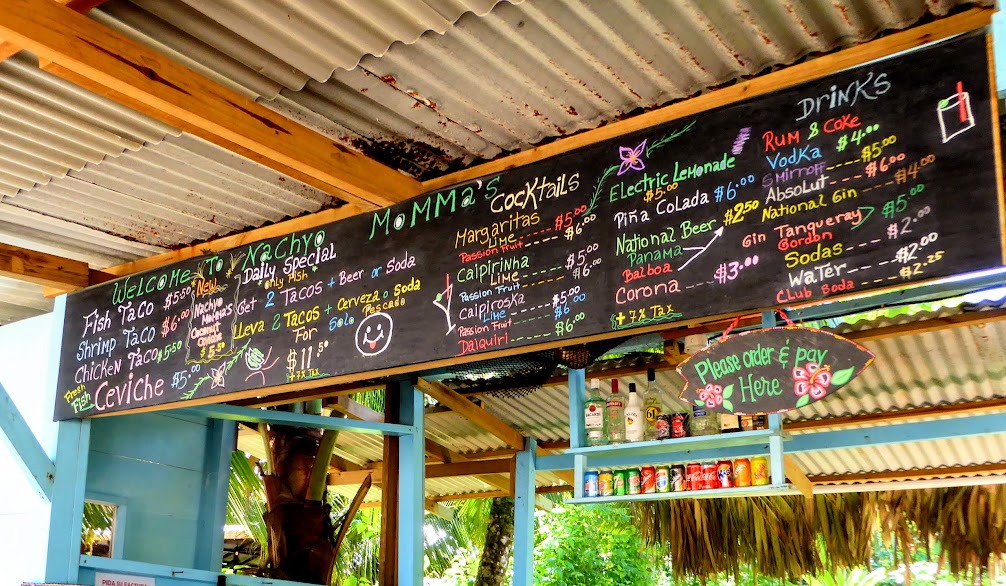 Welcome To Nachyo MoMMa's
Fish Taco $5.50
Shrimp Taco $6.00
Chicken Taco $5.50
Fresh Fish Ceviche $5.00
New
Nachyo
Momma's
Coconut
Ceviche
$5.50
Daily Special
only Fish
Get 2 Tacos + Beer or Soda
Lleva 2 Tacos + Cerveza o Soda
For Solo Pescado
$11.50
+7% Tax
Cocktails
Margaritas
Lime $5.00
Passion Fruit $6.00
Caipirinha
Lime $5.00
Passion Fruit $6.00
Caipiroska
Lime $5.00
Passion Fruit $6
Daiquiri $6.00
Electric Lemonade
$5.00
Piña Colada $6.00
National Beer $2.50
Panama
Balboa
Corona $3.00
+7% Tax
Drinks
Rum & Coke
Vodka $4.00
Smirnoff $5.00
Absolut $6.00
National Gin $4.00
Gin Tanqueray $5.00
Gordon
Sodas $2.00
Water $2.00
Club Soda $2.25
Please order & pay
Here
BACARDI
61
PIDA SU FACTURA